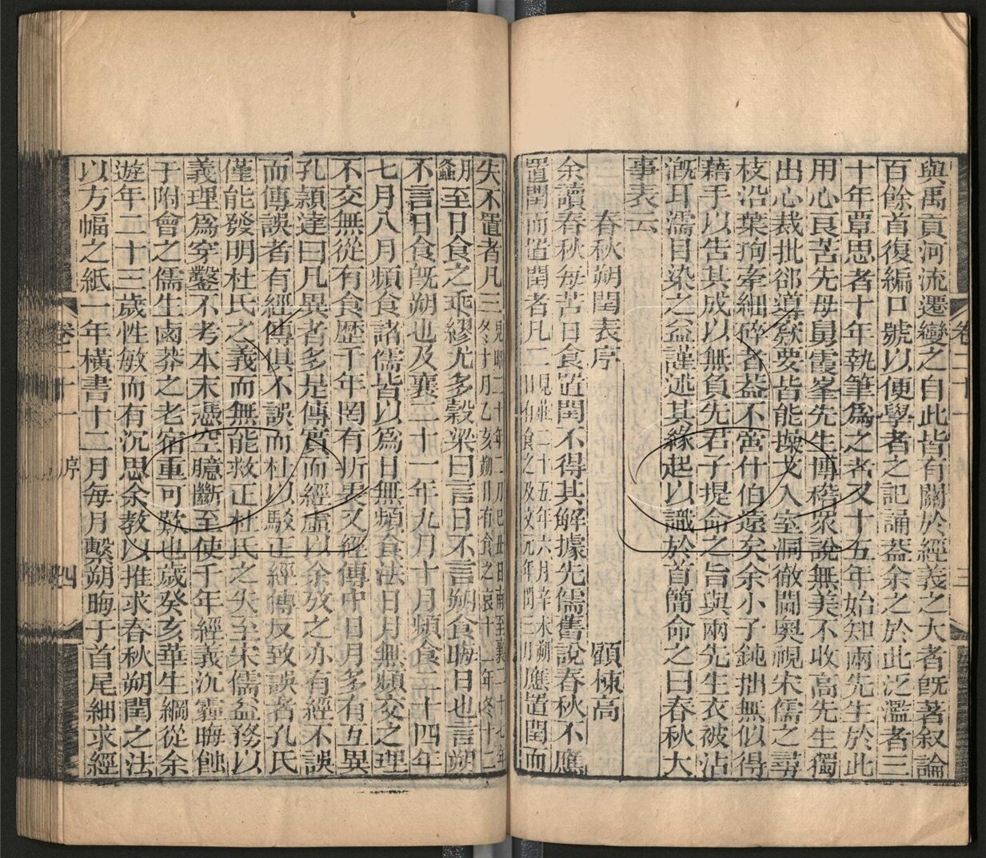 與禹貢河流遷變之自此皆有關於經義之大者旣著叙論
百餘首復編口號以便學者之記誦葢余之於此泛濫者三
十年覃思者十年執筆爲之者又十五年始知兩先生於此
用心良苦先母舅霞峯先生博稽衆說無美不收高先生獨
出心裁批郤導窾要皆能操戈入室洞徹閫奧視宋儒之尋
枝沿葉拘牽細碎者葢不啻什伯遠矣余小子鈍拙無似得
藉手以告其成以無負先君子提命之旨與兩先生衣被沾
漑耳濡目染之益謹述其緣起以識於首簡命之曰春秋大
事表云
春秋朔閏表序 顧棟高
余讀春秋每苦日食置閏不得其解據先儒舊說春秋不應
置閏而置閏者凡二 應置閏而
失不置者凡三
至日食之乖繆尤多穀梁曰言日不言朔食晦日也言朔
不言日食旣朔也及襄二十一年九月十月頻食二十四年
七月八月頻食諸儒皆以爲日無頻食法日月無頻交之理
不交無從有食歷千年罔有折衷又經傳中日月多有互異
孔穎達曰凡異者多是傳實而經虛以余攷之亦有經不誤
而傳誤者有經傳俱不誤而杜以駁正經傳反致誤者孔氏
僅能發明杜氏之義而無能救正杜氏之失至宋儒益務以
義理爲穿鑿不考本末憑空臆斷至使千年經義沉霾晦蝕
于附會之儒生鹵莽之老宿重可歎也歲癸亥華生綱從余
遊年二十三歲性敏而有沉思余敎以推求春秋朔閏之法
以方幅之紙一年橫書十二月每月繫朔晦于首尾細求經
卷二十一 序 四